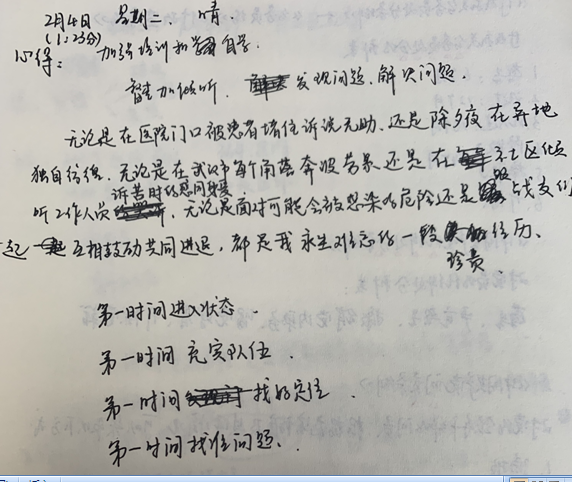 2月4日 星期二 晴.
(1:23分)
心得: 加强培训和自学.
留意加倾听. 发现问题.解决问题.
无论是在医院门口被患者堵住诉说无助.还是除夕夜在异地
独自彷徨.无论是在武汉市每个角落奔波劳累还是在社区倾
听工作人员诉苦时的感同身受.无论是面对可能会被感染的危险还是跟战友们
一起互相鼓动共同进退,都是我永生难忘的一段珍贵的经历、
第一时间进入状态.
第一时间充实队伍.
第一时间找好定位.
第一时间找准问题.